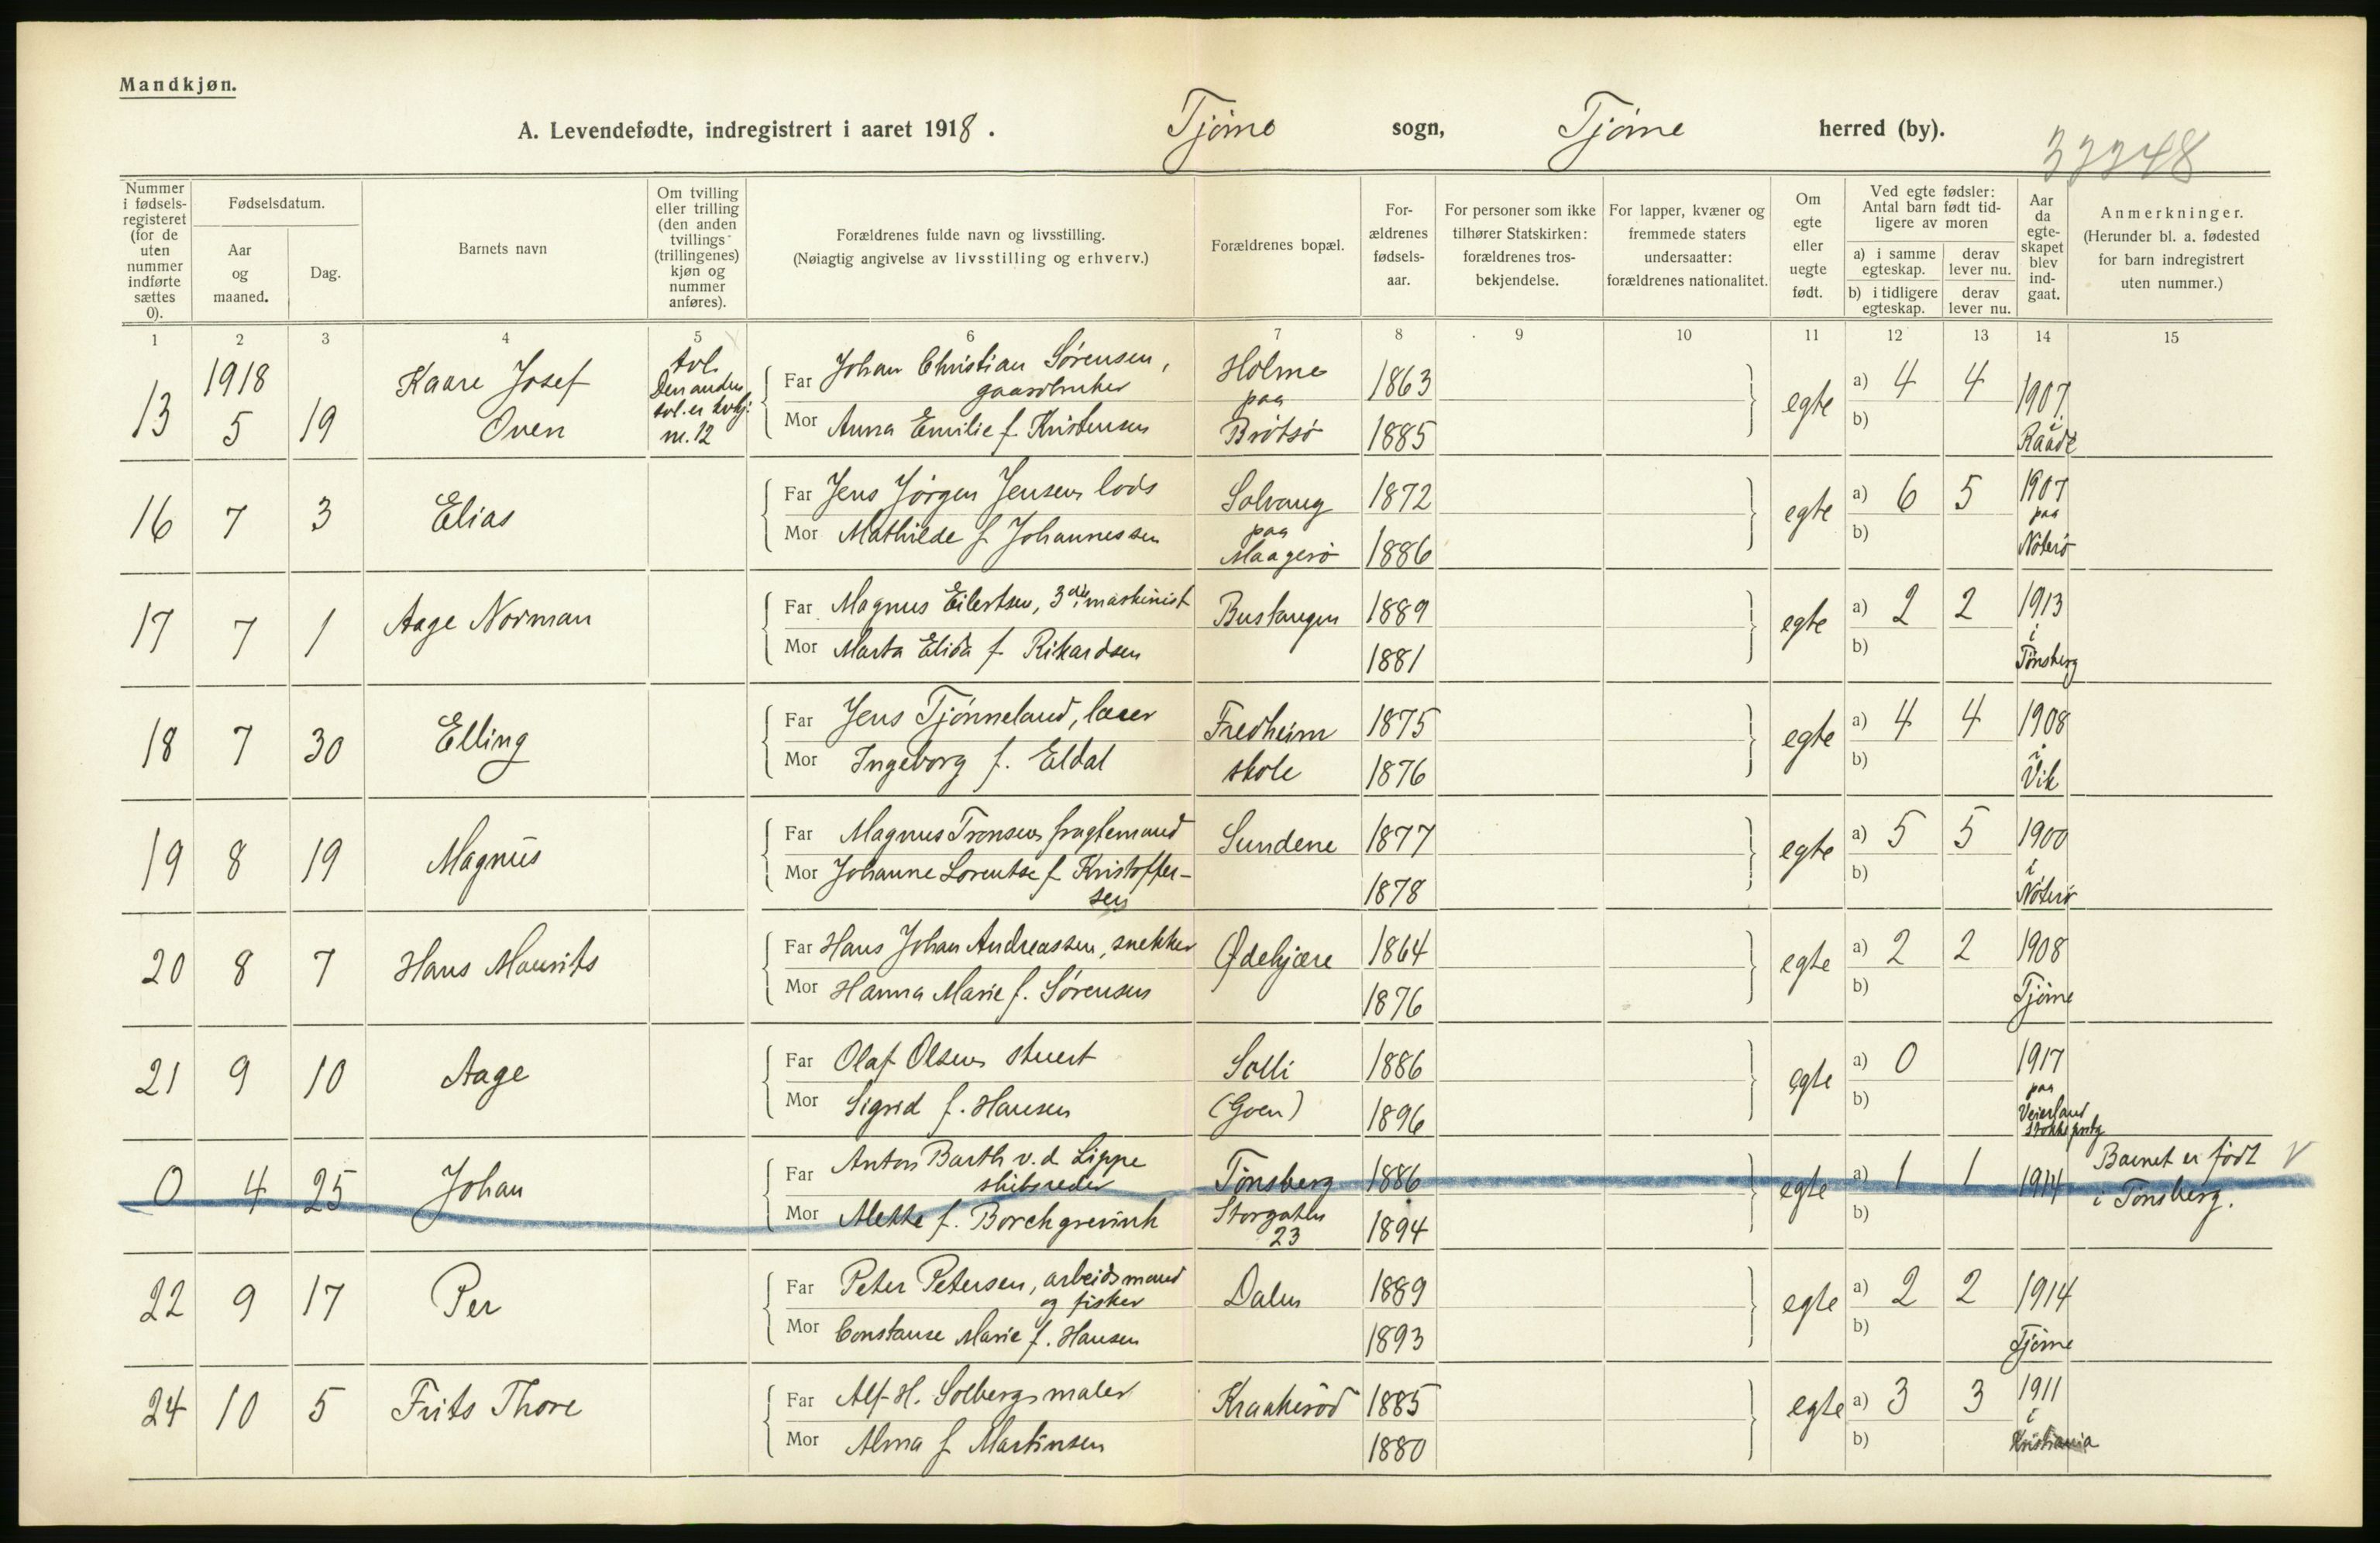 Mandkjøn.
A. Levendefødte, indregistrert i aaret 1918. Tjømø sogn, Tjøme herred (by).
Nummer i fødsels-registeret (for de uten nummer indførte sættes 0).
Fødselsdatum.
Aar og maaned.
Dag.
Barnets navn
Om tvilling eller trilling (den anden tvillings- (trillingenes) kjøn og nummer anføres).
Forældrenes fulde navn og livsstilling. (Nøiagtig angivelse av livsstilling og erhverv.)
Forældrenes bopæl.
For-ældrenes fødsels-aar.
For personer som ikke tilhører Statskirken: forældrenes tros-bekjendelse.
For lapper, kvæner og fremmede staters undersaatter: forældrenes nationalitet.
Om egte eller uegte født.
Ved egte fødsler: Antal barn født tid-ligere av moren
a) i samme egteskap.
derav lever nu.
b) i tidligere egteskap.
derav lever nu.
Aar da egte-skapet blev ind-gaat.
Anmerkninger. (Herunder bl. a. fødested for barn indregistrert uten nummer.)
1 2 3 4 5 6 7 8 9 10 11 12 13 14 15
13 1918 5 19 Kaare Josef Oven tvl. Den anden tvl. er kvkj. nr. 12
Far Johan Christian Sørensen, gaardbruker Holme paa Brøtsø 1863 egte a) 4 4 1907 i Raade
Mor Anna Emilie f. Kristensen 1885 b)
16 7 3 Elias
Far Jens Jørgen Jensen lods Solvang paa Maagerø 1872 egte a) 6 5 1907 paa Nøterø
Mor Mathilde f. Johannessen 1886 b)
17 7 1 Aage Norman
Far Magnus Eilertsen, 3die maskinist Bustangen 1889 egte a) 2 2 1913 i Tønsberg
Mor Marta Elida f. Rikardsen 1881 b)
18 7 30 Elling
Far Jens Tjønneland, lærer Fredheim skole 1875 egte a) 4 4 1908 i Vik
Mor Ingeborg f. Eldal 1876 b)
19 8 19 Magnus
Far Magnus Tronsen, fragtemand Sundene 1877 egte a) 5 5 1900 i Nøterø
Mor Johanne Lorentse f. Kristoffer-sen 1878 b)
20 8 7 Hans Maurits
Far Hans Johan Andreassen, snekker Ødekjære 1864 egte a) 2 2 1908 Tjøme
Mor Hanna Marie f. Sørensen 1876 b)
21 9 10 Aage
Far Olaf Olsen stuert Solli (Goen) 1886 egte a) 0 1917 paa Veierland Stokke prstg
Mor Sigrid f. Hansen 1896 b)
0 4 25 Johan
Far Anton Barth v. d. Lippe skibsreder Tønsberg Storgaten 23 1886 egte a) 1 1 1914 Barnet er født i Tønsberg. V
Mor Mette f. Borchgrevink 1894 b)
22 9 17 Per
Far Peter Petersen, arbeidsmand og fisker Dalen 1889 egte a) 2 2 1914 Tjøme
Mor Constanse Marie f. Hansen 1893 b)
24 10 5 Frits Thore
Far Alf H. Solberg, maler Kraakerød 1885 egte a) 3 3 1911 i Kristiania
Mor Alma f. Martinsen 1880 b)